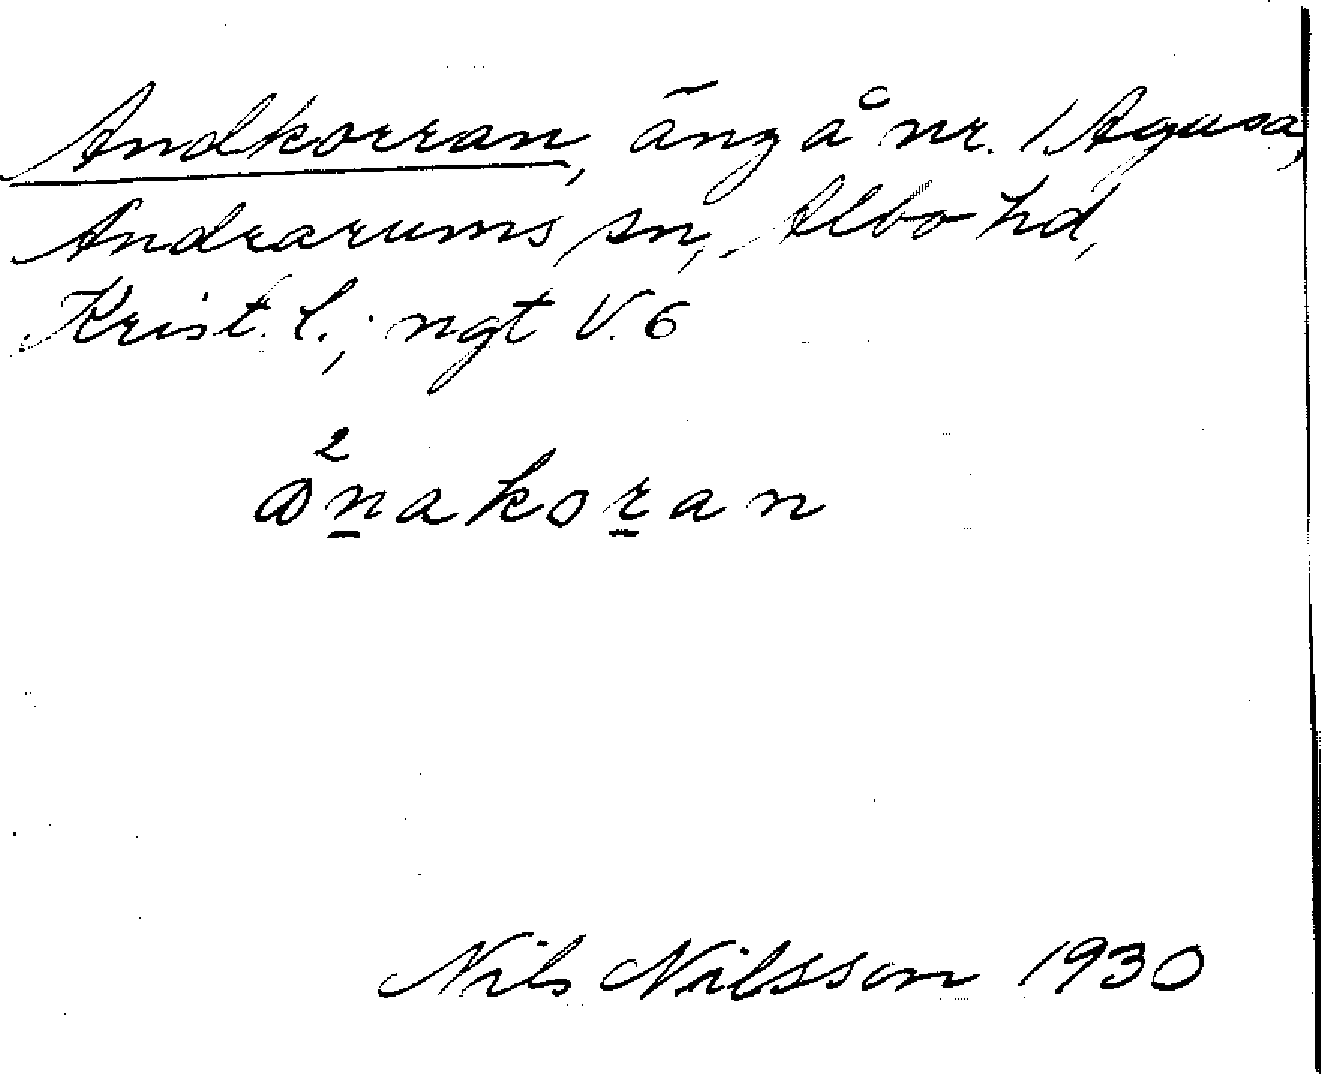 Andkorran, äng å nr. 1 Agusa,
Andrarums sn, Albo hd,
Krist. l.; ngt V. 6
2
ɑn̲akor̲an
Nils Nilsson 1930